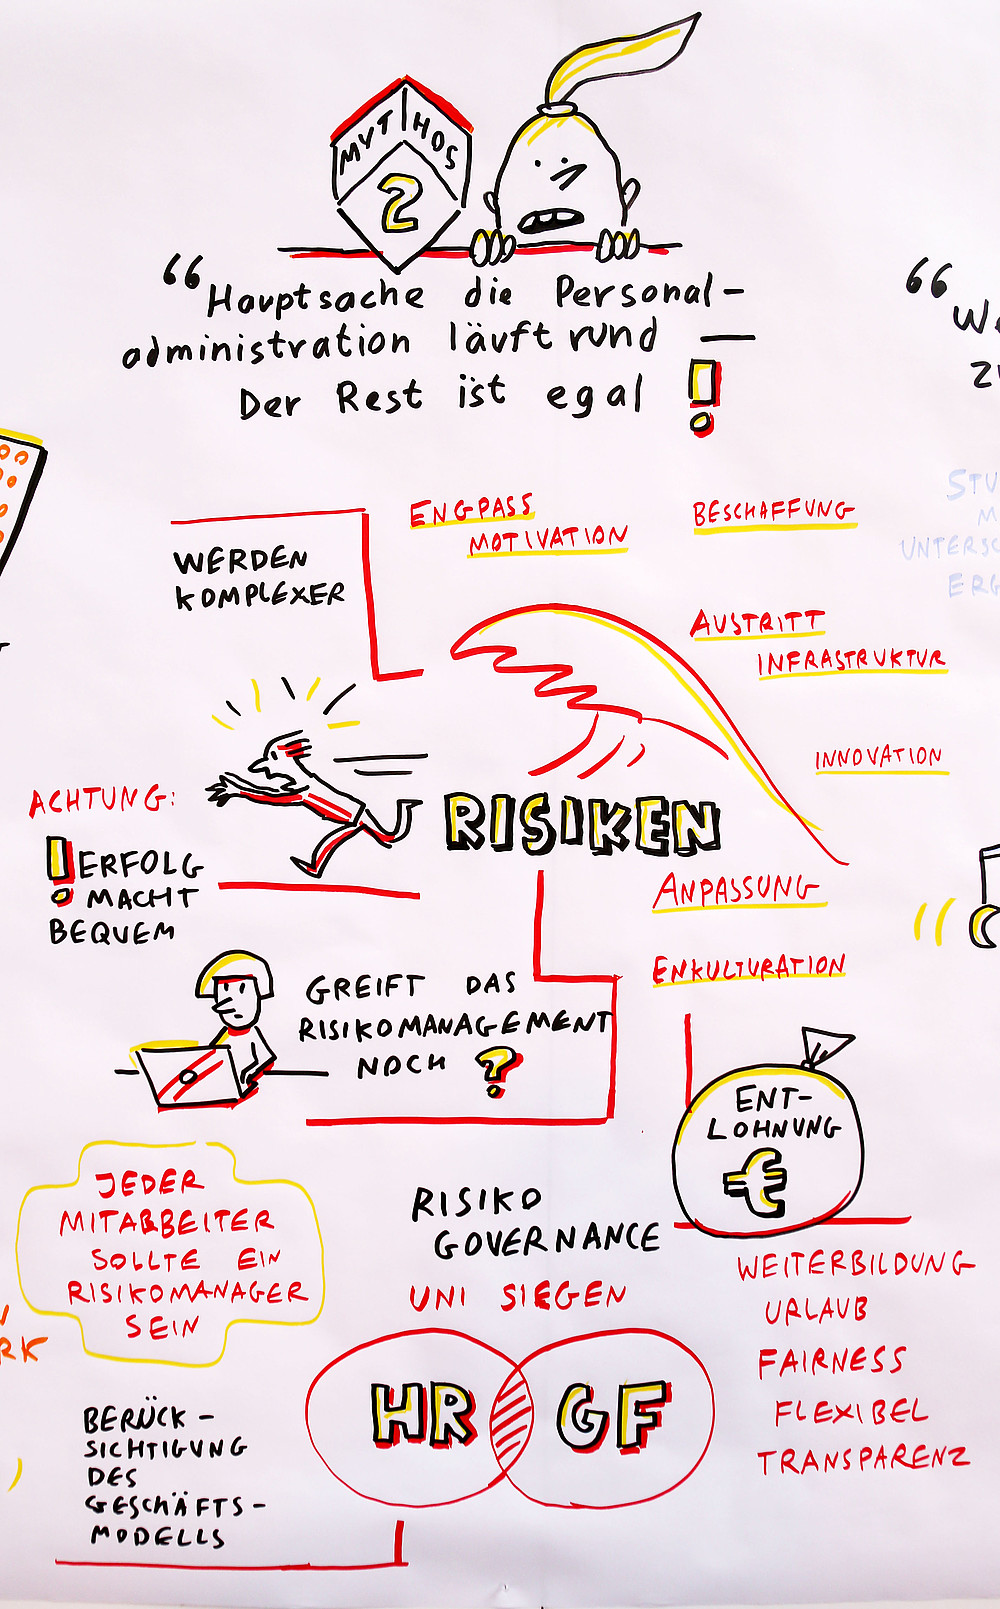 MYTHOS
2
“Hauptsache die Personal-
administration läuft rund —
Der Rest ist egal !
WERDEN
KOMPLEXER
ENGPASS
MOTIVATION
BESCHAFFUNG
AUSTRITT
INFRASTRUKTUR
INNOVATION
RISIKEN
ACHTUNG:
! ERFOLG
MACHT
BEQUEM
ANPASSUNG
ENKULTURATION
GREIFT DAS
RISIKOMANAGEMENT
NOCH ?
ENT-
LOHNUNG
€
JEDER
MITARBEITER
SOLLTE EIN
RISIKOMANAGER
SEIN
RISIKO
GOVERNANCE
UNI SIEGEN
WEITERBILDUNG
URLAUB
FAIRNESS
FLEXIBEL
TRANSPARENZ
HR GF
BERÜCK-
SICHTIGUNG
DES
GESCHÄFTS-
MODELLS